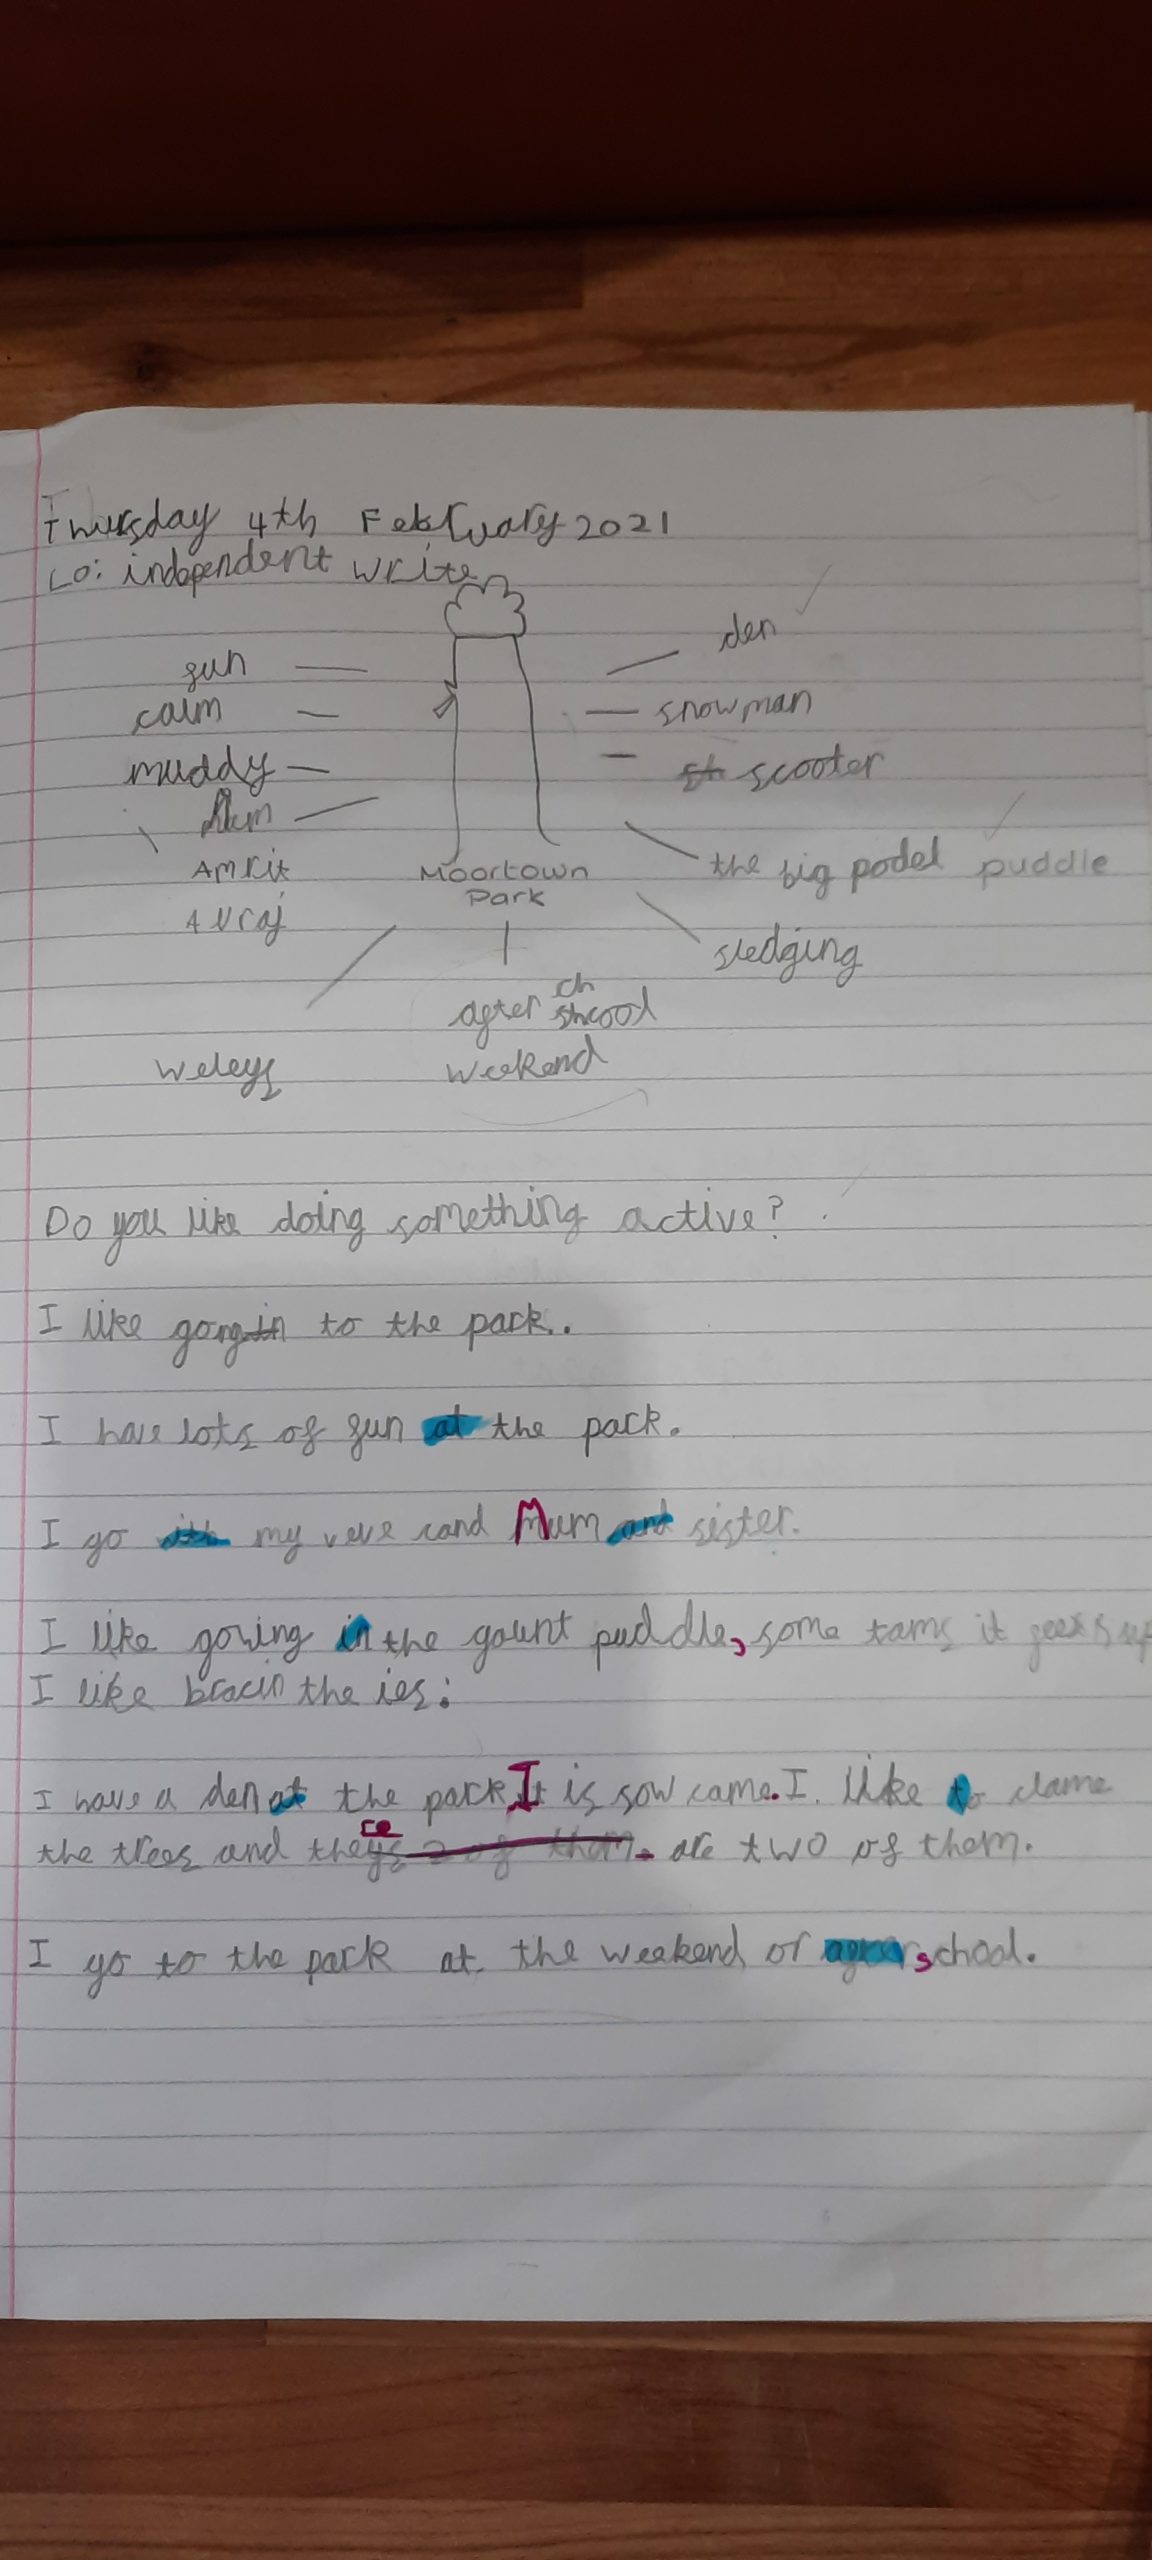 Thursday 4th February 2021
LO: independent write
fun
calm
muddy
Mum
Amrit
Avraj
weleys
Moortown
Park
after school
ch
weekend
den
snowman
scooter
the big podel puddle
sledging
Do you like doing something active?
I like gong to the park.
I have lots of fun at the park.
I go with my Mum and sister.
I like gowing in the gaunt puddle, some tams it
I like bracin the ies.
I have a den at the park. It is sow came. I like to clame
re
the trees and they's 2 of them. are two of them.
I go to the park at the weekend or after school.